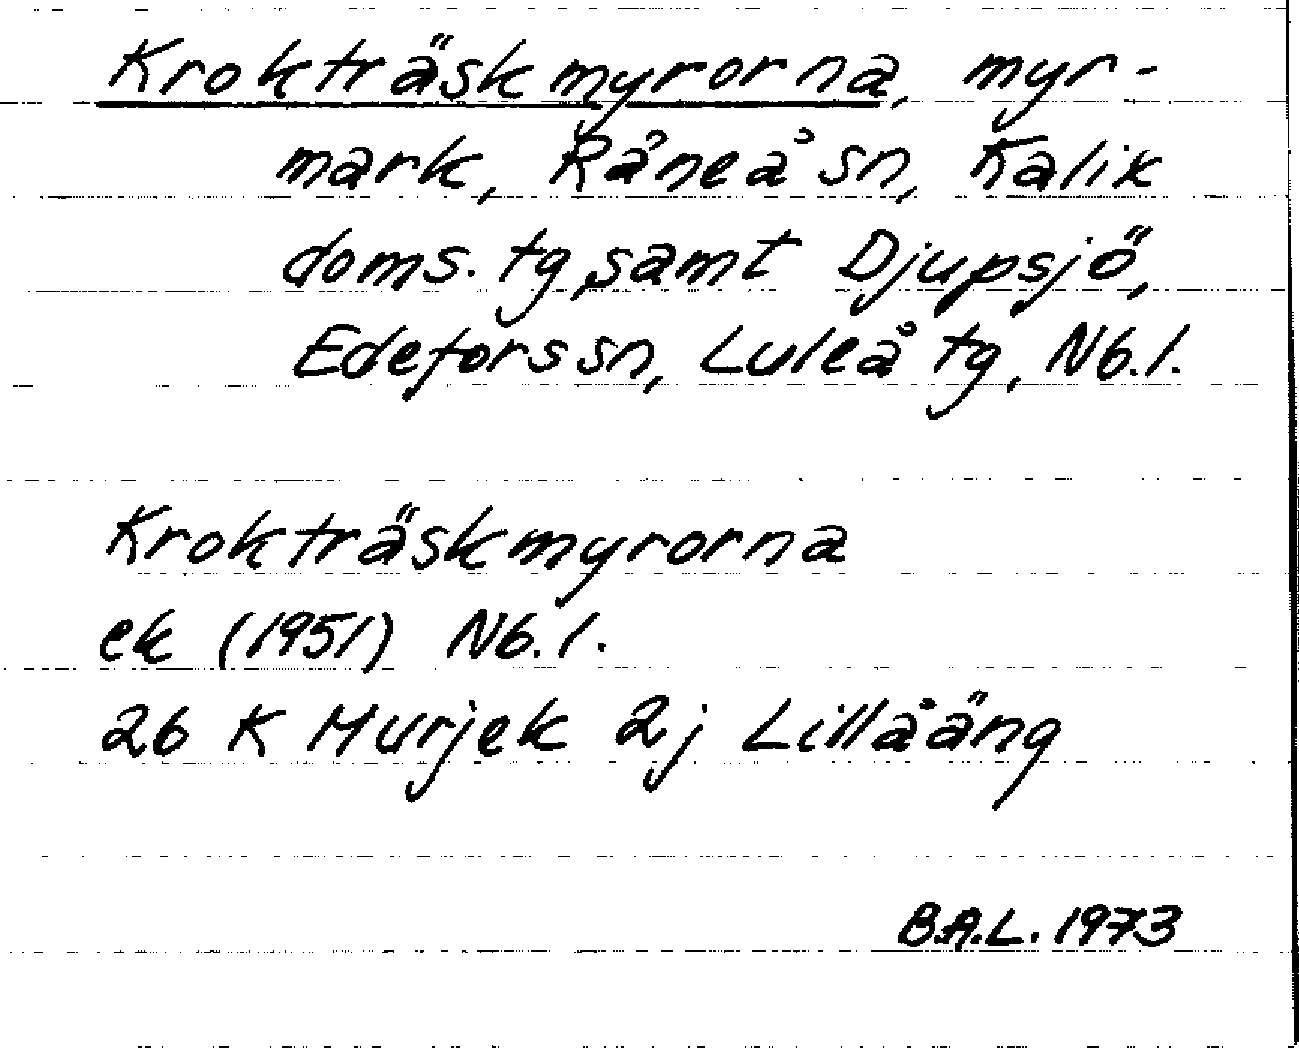 Krokträskmyrorna, myr-
mark, Råneå sn, Kalix
doms. tg, samt Djupsjö,
Edefors sn, Luleå tg, Nb. l.
Krokträskmyrorna
ek (1951) Nb. l.
26 K Murjek 2j Lillåäng
B.A.L. 1973